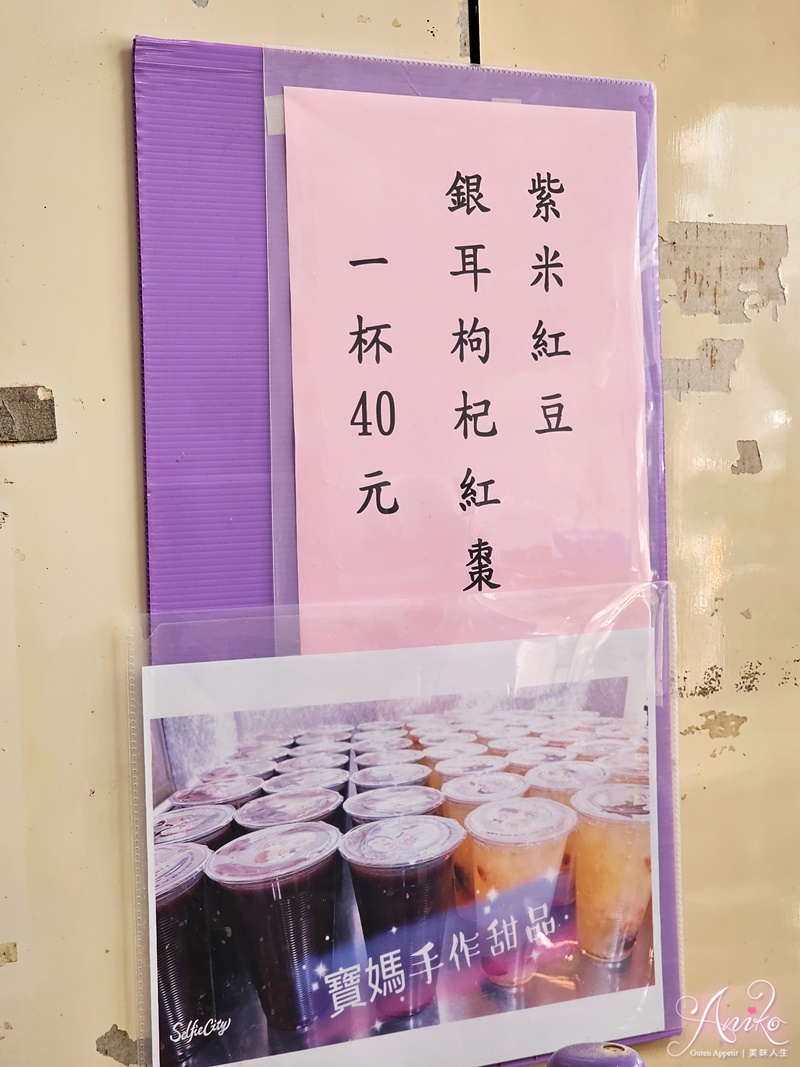 紫米紅豆
銀耳枸杞紅棗
一杯40元
寶媽手作甜品
SelfieCity
Aniko
Guten Appetit | 美味人生